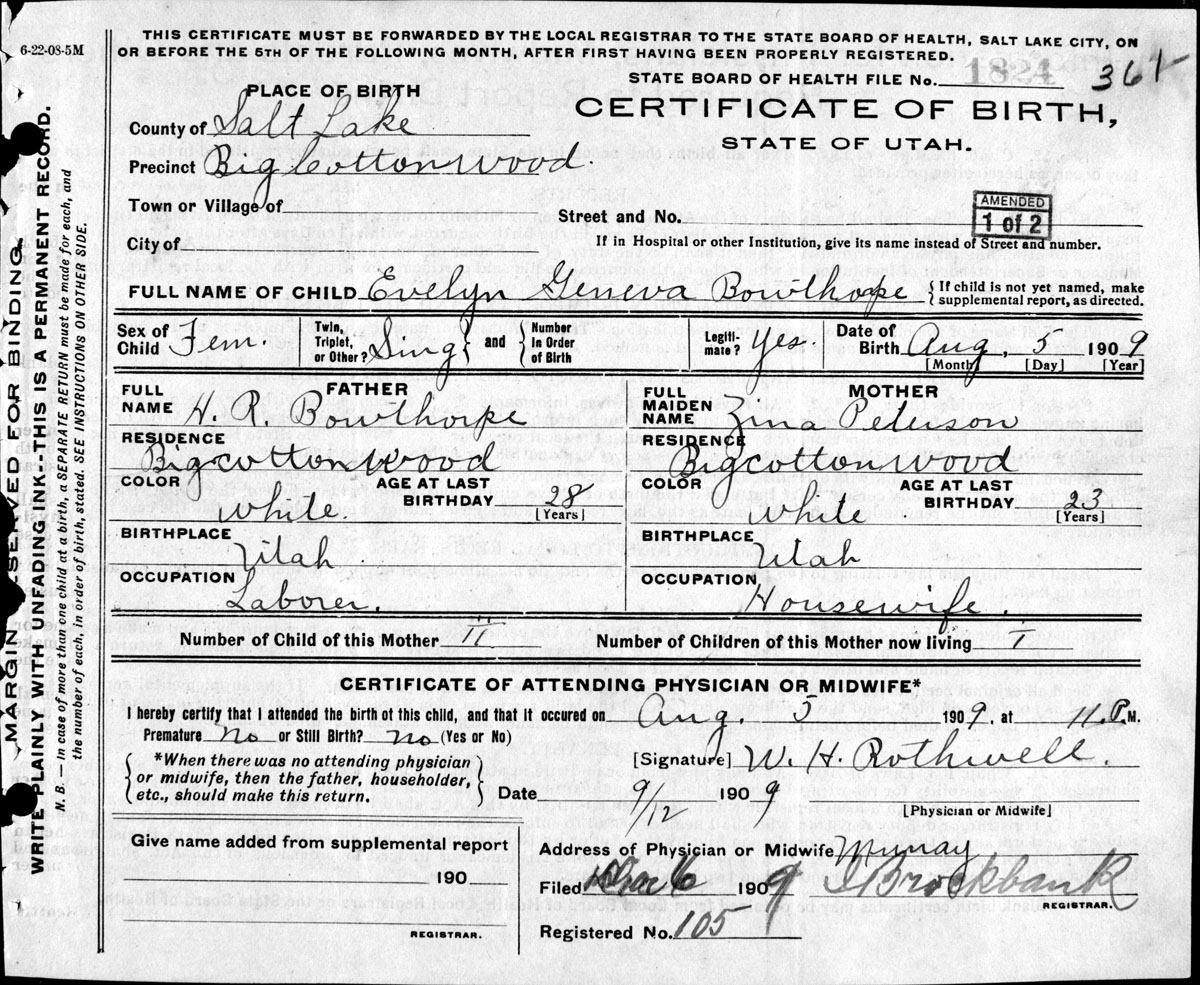 6-22-08-5M
THIS CERTIFICATE MUST BE FORWARDED BY THE LOCAL REGISTRAR TO THE STATE BOARD OF HEALTH, SALT LAKE CITY, ON
OR BEFORE THE 5TH OF THE FOLLOWING MONTH, AFTER FIRST HAVING BEEN PROPERLY REGISTERED.
STATE BOARD OF HEALTH FILE No. 1824
CERTIFICATE OF BIRTH,
STATE OF UTAH.
PLACE OF BIRTH
County of Salt Lake
Precinct Big Cottonwood
Town or Village of
Street and No.
AMENDED
1 of 2
City of
If in Hospital or other Institution, give its name instead of Street and number.
FULL NAME OF CHILD Evelyn Geneva Bowthorpe { If child is not yet named, make supplemental report, as directed.
Sex of Child Fem. Twin, Triplet, or Other? Sing } and { Number In Order of Birth Legiti-mate? Yes. Date of Birth Aug, 5 1909
[Month] [Day] [Year]
FATHER
FULL NAME H. R. Bowthorpe
RESIDENCE
Bigcottonwood
COLOR White. AGE AT LAST BIRTHDAY 28
[Years]
BIRTHPLACE Utah
OCCUPATION
Laborer.
MOTHER
FULL MAIDEN NAME Zina Peterson
RESIDENCE
Bigcottonwood
COLOR White AGE AT LAST BIRTHDAY 23
[Years]
BIRTHPLACE Utah
OCCUPATION
Housewife.
Number of Child of this Mother II
Number of Children of this Mother now living I
CERTIFICATE OF ATTENDING PHYSICIAN OR MIDWIFE*
I hereby certify that I attended the birth of this child, and that it occured on Aug. 5 1909. at 11. P. M.
Premature No or Still Birth? No (Yes or No)
{ *When there was no attending physician
or midwife, then the father, householder,
etc., should make this return. }
[Signature] W. H. Rothwell.
Date 9/12 1909
[Physician or Midwife]
Give name added from supplemental report
190
REGISTRAR.
Address of Physician or Midwife Murray
Filed 1909 Brockbank
REGISTRAR.
Registered No. 105
MARGIN RESERVED FOR BINDING.
WRITE PLAINLY WITH UNFADING INK-THIS IS A PERMANENT RECORD.
N.B. — In case of more than one child at a birth, a SEPARATE RETURN must be made for each, and
the number of each, in order of birth, stated. SEE INSTRUCTIONS ON OTHER SIDE.